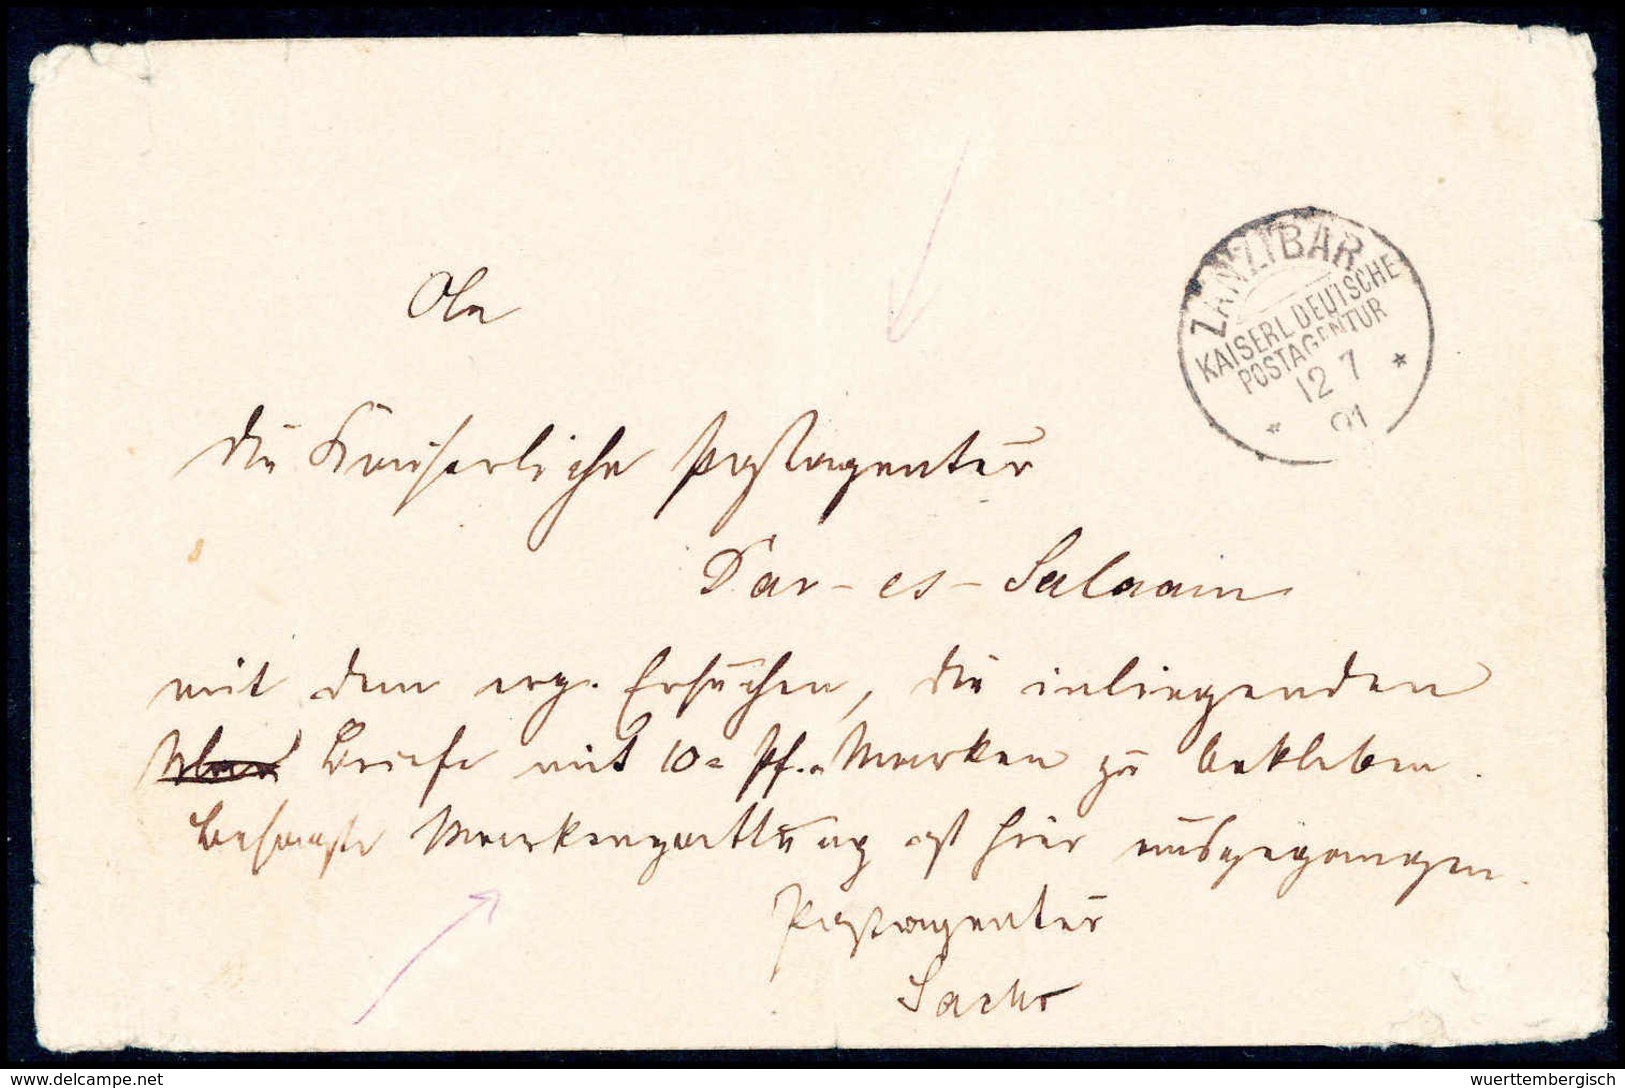 An
ZANZIBAR
KAISERL. DEUTSCHE
POSTAGENTUR
12 7
91
die Kaiserliche Postagentur
Dar-es-Salaam
mit dem erg. Ersuchen, die inliegenden
Briefe mit 10-Pf.-Marken zu bekleben.
Besagte Markengattung ist hier ausgegangen.
Postagentur
Sachs
wuerttembergisch
www.delcampe.net